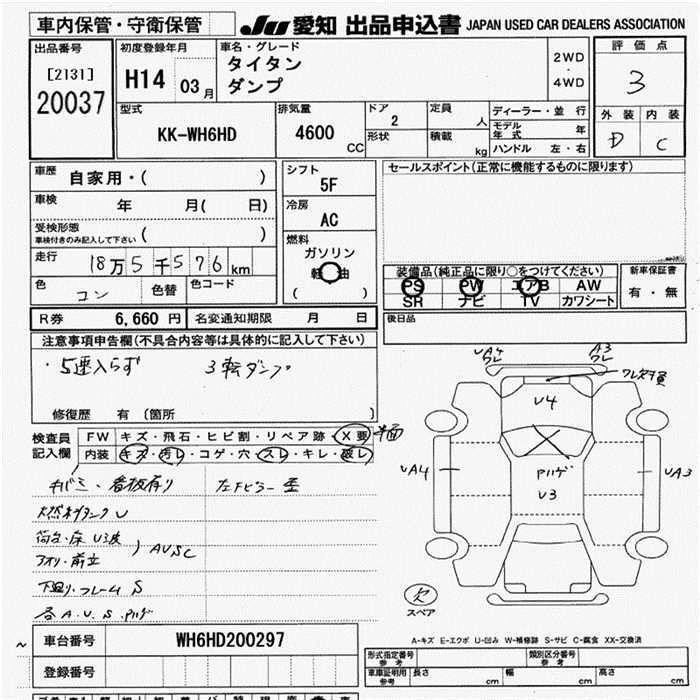 車内保管・守衛保管
JU 愛知 出品申込書 JAPAN USED CAR DEALERS ASSOCIATION
出品番号
[2131]
20037
初度登録年月
H14 03月
車名・グレード
タイタン
ダンプ
2WD
・
4WD
評価点
3
外装 内装
D C
型式
KK-WH6HD
排気量
4600 CC
ドア
2
形状
定員
人
積載
kg
ディーラー・並行
モデル年式 年
ハンドル 左・右
車歴 自家用・( )
車検 年 月( 日)
受検形態
車検付きのみ記入して下さい ( )
走行 18万5千576km
色 コン 色替 色コード
シフト
5F
冷房
AC
燃料
ガソリン
軽油
( )
セールスポイント(正常に機能するものに限ります)
装備品(純正品に限り○をつけてください)
PS PW エアB AW
SR ナビ TV カワシート
新車保証書
有・無
後日品
R券 6,660円 名変通知期限 月 日
注意事項申告欄(不具合内容等は具体的に記入して下さい)
・5速入らず 3転ダンプ
修復歴 有 (箇所 )
検査員記入欄
FW キズ・飛石・ヒビ割・リペア跡・X要 半面
内装 キズ・汚レ・コゲ・穴・スレ・キレ・破レ
キバミ・看板有り 左Fピラー歪
燃料タンクU
荷台・床U3波
アオリ・前立 ) AUSC
下廻り・フレームS
各A.U.S.ハゲ
UA4 ワレ
A3 ワレ
ワレ欠損
U4
UA4
ハゲ
U3
UA3
欠
スペア
A-キズ E-エクボ U-凹み W-補修跡 S-サビ C-腐食 XX-交換済
~
車台番号 WH6HD200297
登録番号
形式指定番号 参考
類別区分番号 参考
車庫証明用 参考 長さ cm 幅 cm 高さ cm